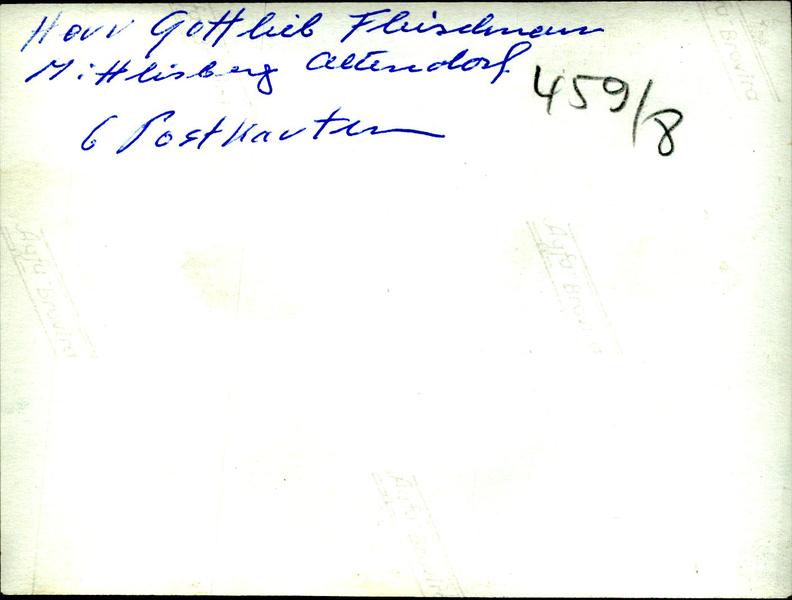 Herr Gottlieb Fleischmann
Mittlisberg Altendorf.
459/8
6 Postkarten
Agfa Brovira
Agfa Brovira
Agfa Brovira
Agfa Brovira